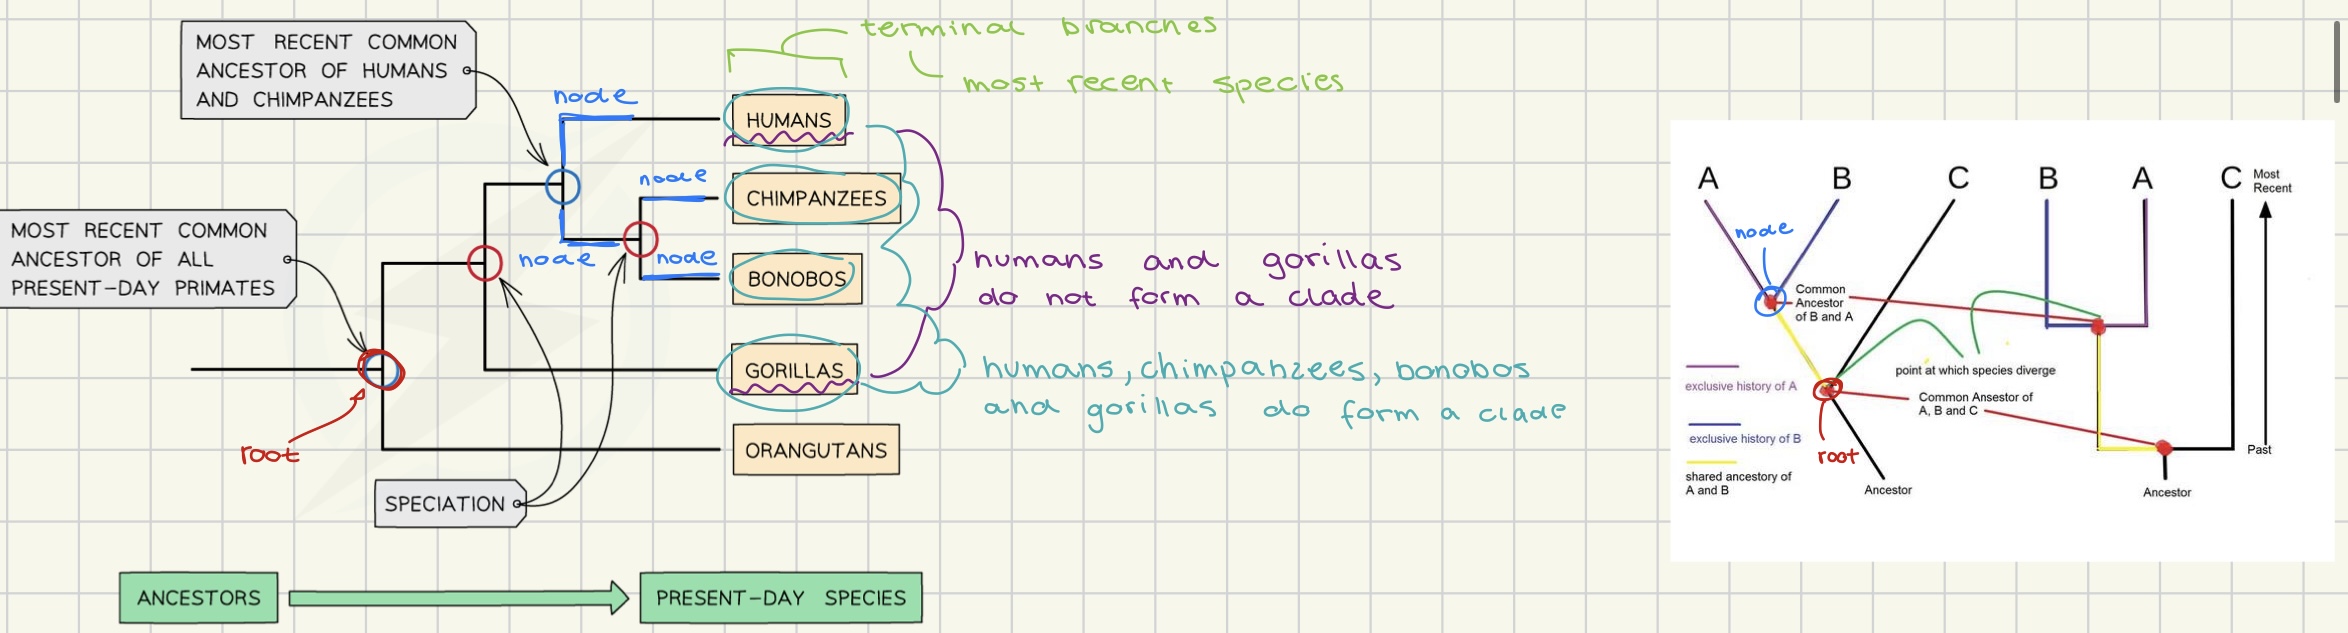 terminal branches
most recent species
MOST RECENT COMMON
ANCESTOR OF HUMANS
AND CHIMPANZEES
node
HUMANS
node
CHIMPANZEES
MOST RECENT COMMON
ANCESTOR OF ALL
PRESENT-DAY PRIMATES
node
node
BONOBOS
humans and gorillas
do not form a clade
GORILLAS
humans, chimpanzees, bonobos
and gorillas do form a clade
root
ORANGUTANS
SPECIATION
ANCESTORS
PRESENT-DAY SPECIES
A B C B A C
Most
Recent
node
Common
Ancestor
of B and A
point at which species diverge
exclusive history of A
Common Ansestor of
A, B and C
exclusive history of B
root
Past
shared ancestory of
A and B
Ancestor
Ancestor